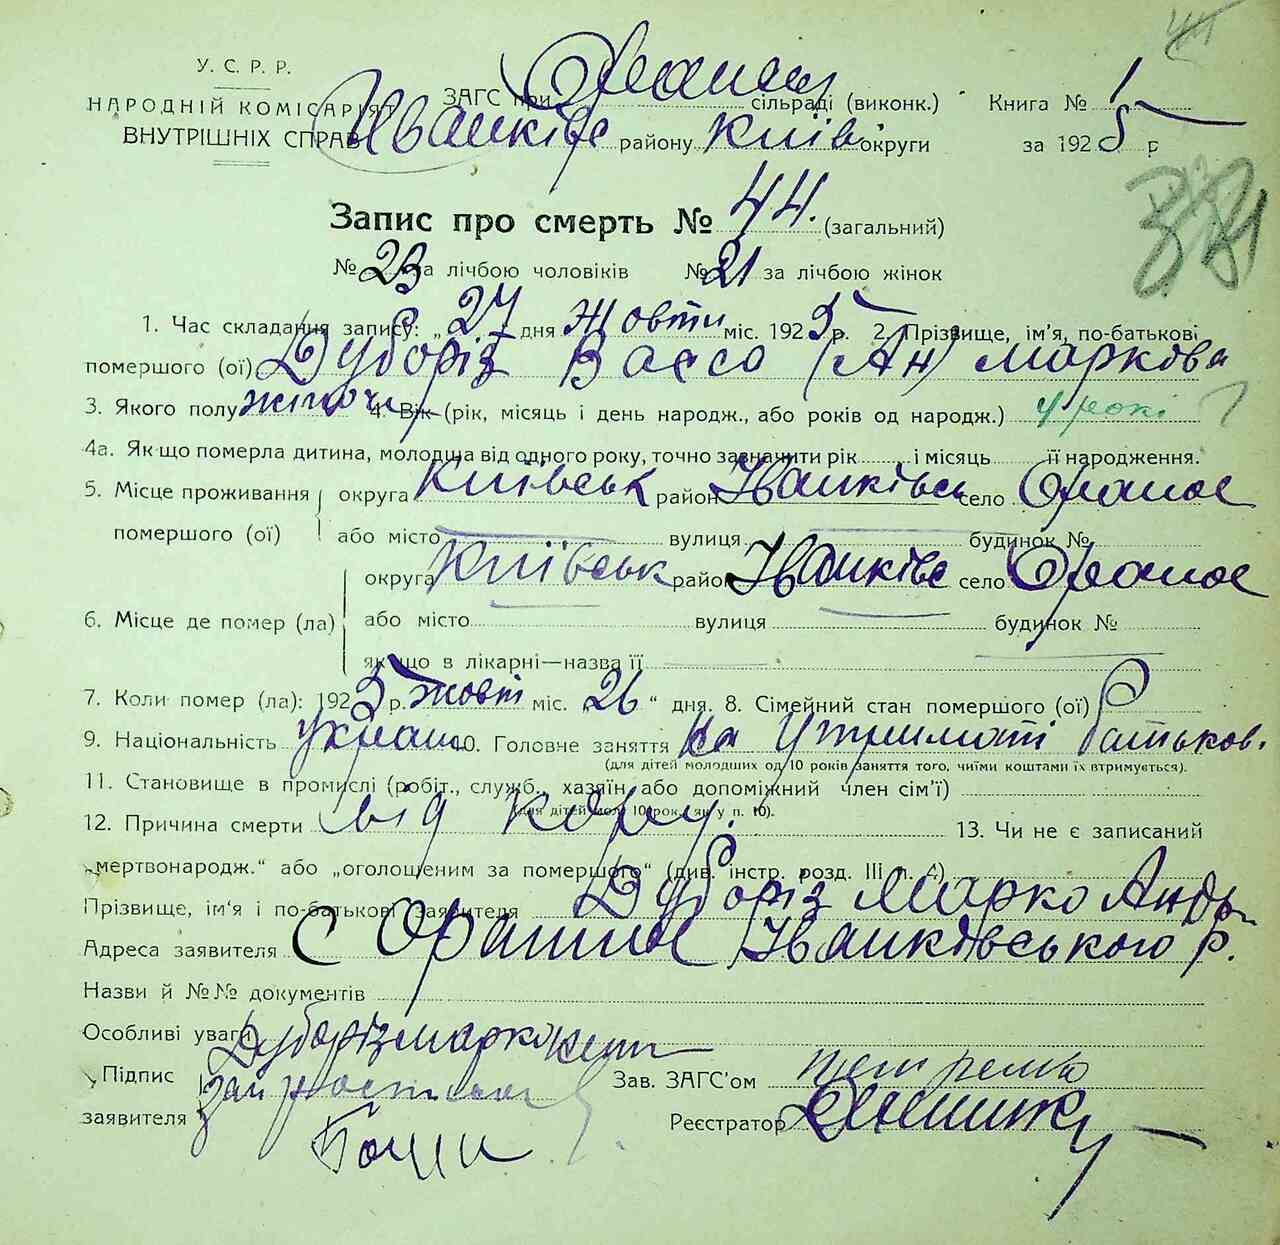 У. С. Р. Р.
НАРОДНІЙ КОМІСАРІЯТ
ВНУТРІШНІХ СПРАВ
ЗАГС при сільраді (виконк.) Книга № 1
Іванківс району Київ округи за 1925 р
Запис про смерть № 44. (загальний)
№ 23 за лічбою чоловіків № 21 за лічбою жінок
1. Час складання запису: „27 дня Жовтн міс. 1925 р. 2. Прізвище, ім'я, по-батькові
помершого (ої) Дуборіз Васса (Ан) Маркова
3. Якого полу жіночи 4. Вік (рік, місяць і день народж., або років од народж.) 4 рокі
4а. Як що померла дитина, молодша від одного року, точно зазначити рік і місяць її народження.
5. Місце проживання округа Київськ район Іванківсь село Ораное
помершого (ої) або місто вулиця будинок №
округа Київськ район Іванківс село Ораное
6. Місце де помер (ла) або місто вулиця будинок №
як що в лікарні—назва її
7. Коли помер (ла): 1925 р. Жовт міс. „26“ дня. 8. Сімейний стан помершого (ої)
9. Національність Україн 10. Головне заняття На Утримані батьков.
(для дітей молодших од 10 років заняття того, чиїми коштами їх втримується).
11. Становище в промислі (робіт., служб., хазяїн або допоміжний член сім'ї)
(для дітей мол. 10 рок., як у п. 10).
12. Причина смерти від кору. 13. Чи не є записаний
„мертвонародж.“ або „оголошеним за помершого“ (див. інстр. розд. III п. 4)
Прізвище, ім'я і по-батькові заявителя Дуборіз Марко Андр
Адреса заявителя С Ораное Іванківського р.
Назви й №№ документів
Особливі уваги Дуборіз Марко
Підпис Зав. ЗАГС'ом
заявителя Реєстратор